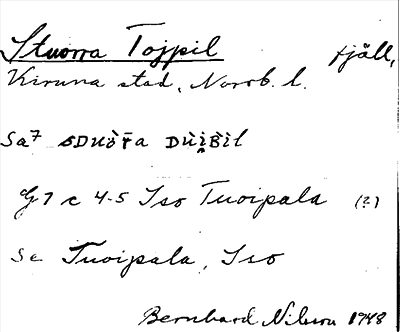 Stuorra Tojpil fjäll,
Kiruna stad, Norrb. l.
Sa7 sDuòr̄a Dùi̮Bil
G 7 c 4-5 Iso Tuoipala (?)
Se Tuoipala, Iso
Bernhard Nilsson 1948